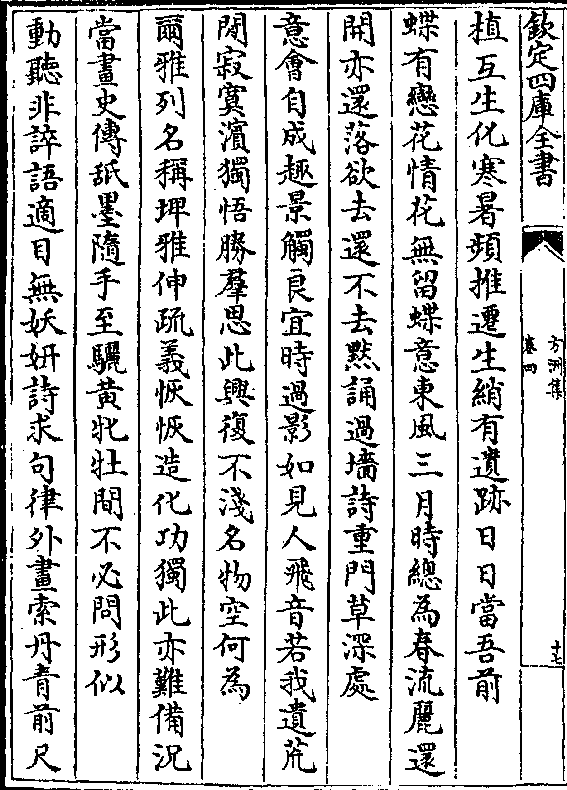 欽定四庫全書
方洲集
卷四
十七
植互生化寒暑頻推遷生綃有遺跡日日當吾前
蝶有戀花情花無留蝶意東風三月時總為春流麗還
開亦還落欲去還不去黙誦過墻詩重門草深處
意會自成趣景觸良宜時過影如見人飛音若我遺荒
閒寂寞濱獨悟勝羣思此興復不淺名物空何為
爾雅列名稱埤雅伸疏義恢恢造化功獨此亦難備況
當畫史傳舐墨隨手至驪黄牝牡間不必問形似
動聽非誶語適目無妖妍詩求句律外畫索丹青前尺